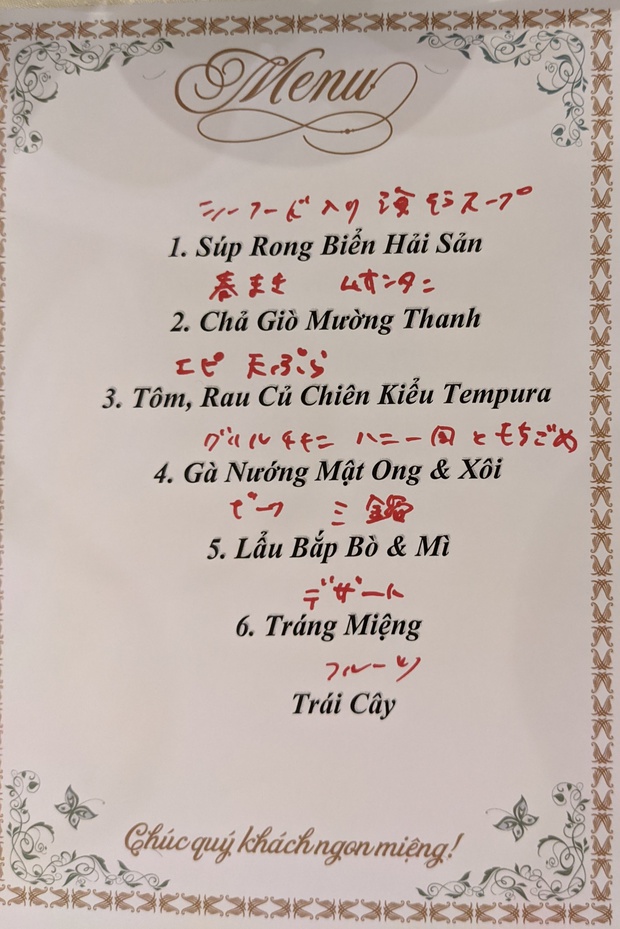 Menu
シーフード入り 海そうスープ
1. Súp Rong Biển Hải Sản
春まき
2. Chả Giò Mường Thanh
エビ 天ぷら
3. Tôm, Rau Củ Chiên Kiểu Tempura
グリルチキン ハニー と もちごめ
4. Gà Nướng Mật Ong & Xôi
ビーフ ミ 鍋
5. Lẩu Bắp Bò & Mì
デザート
6. Tráng Miệng
フルーツ
Trái Cây
Chúc quý khách ngon miệng!